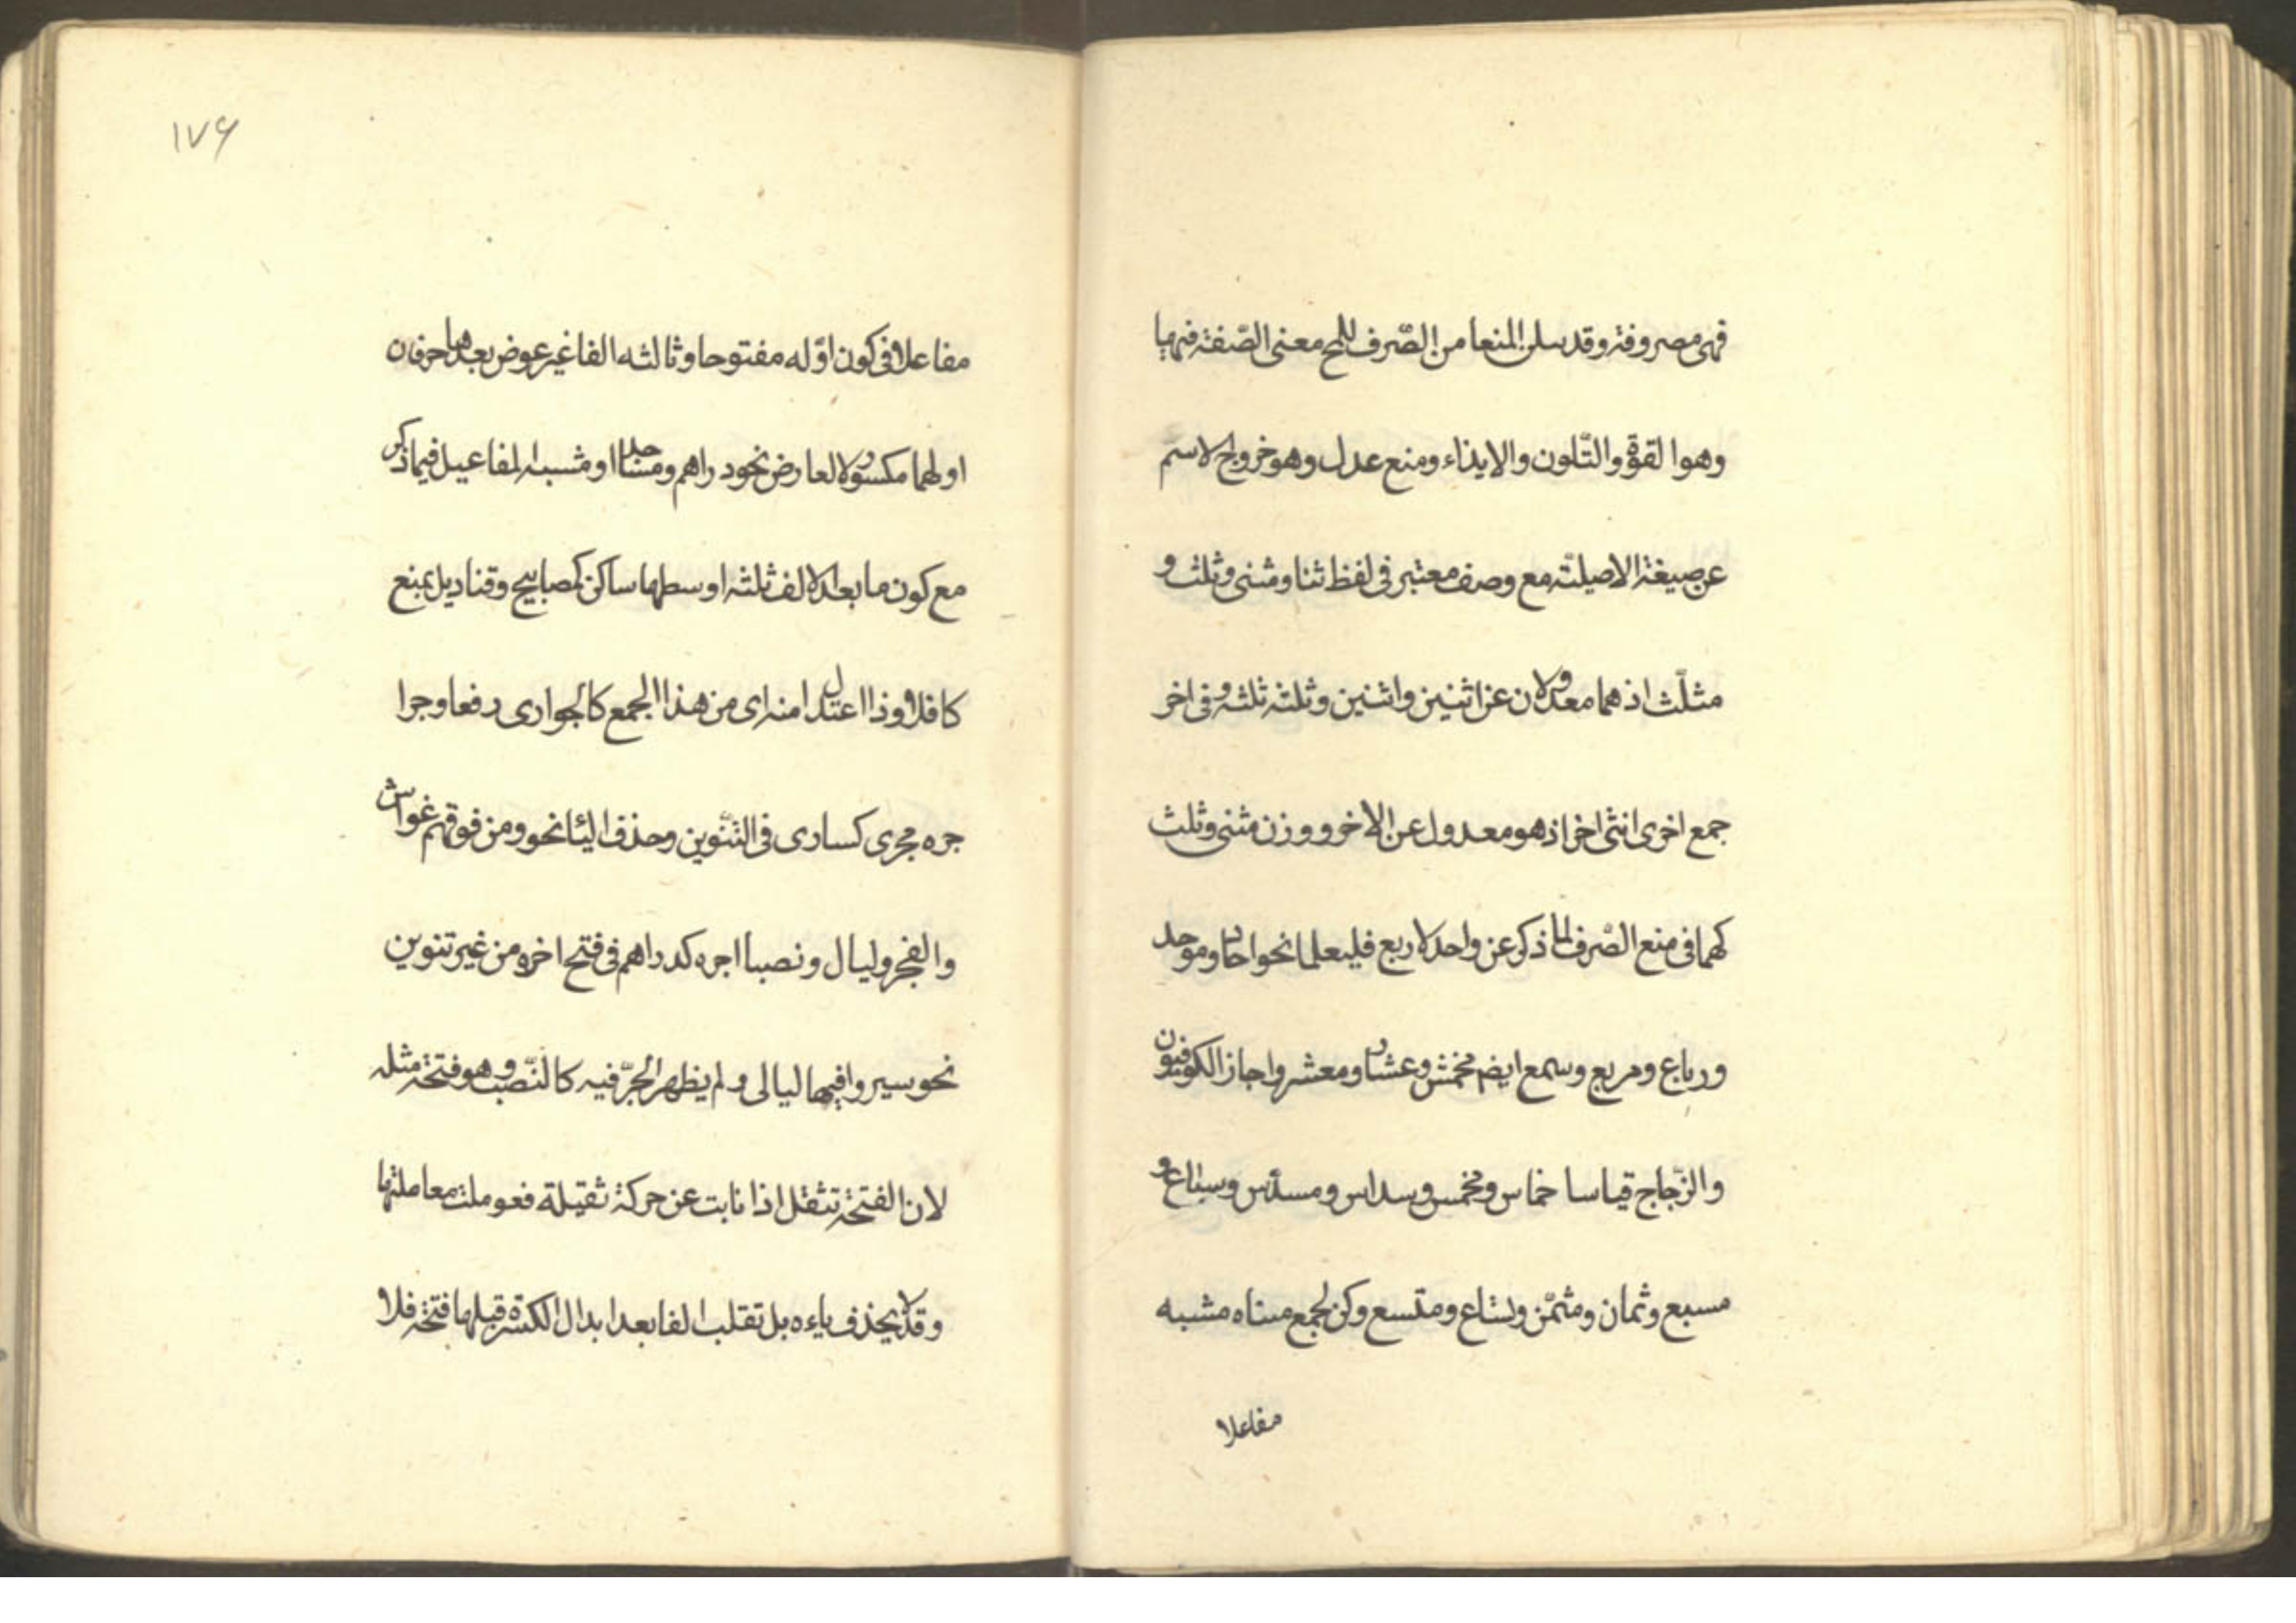 فهى مصروفة وقد ينلن المنعا من الصّرف للمح معنى الصّفة فيها
وهو القوّة والتّلون والايذاء ومنع عدل وهو خروج الاسم
عن صيغة الاصليّة مع وصف معتبر فى لفظ ثنا ومثنى وثلث و
مثلّث اذ هما معدولان عن اثنين واثنين وثلثة ثلثة وفى اخر
جمع اخرى انثى اخر اذ هو معدول عن الاخر ووزن مثنى وثلث
كهما فى منع الصّرف لما ذكر عن واحد لاربع فليعلما نحو احاد وموحد
ورباع ومربع وسمع ايضم مخمس وعشار ومعشر واجاز الكوفيون
والزّجاج قياسا خماس ومخمس وسداس ومسدّس وسباع و
مسبع وثمان ومثمّن وتساع ومتسع وكن لجمع مشبه
مفاعلا
١٧۶
مفاعلا فى كون اوّله مفتوحا وثالثه الفا غير عوض بعدها حرفان
اولهما مكسور لا لعارض نحو دراهم ومساجد او مشبه المفاعيل فيما ذكر
مع كون ما بعد الالف ثلثة اوسطها ساكن كمصابيح وقناديل بمنع
كافلا وذا اعتدل امنه اى من هذا الجمع كالجوارى رفعا وجرا
جره مجرى كسارى فى التّنوين وحذف اليئا نحو ومن فوقهم غواش
والفجر وليال ونصبا اجره كدراهم فى فتح اخره من غير تنوين
نحو سيروا فيها ليالى ولم يظهر الجرّ فيه كالنّصب وهو فتحة مثله
لان الفتحة تثقل اذا نابت عن حركة ثقيلة فعوملت معاملتها
وقد لا يحذف ياءه بل تقلب الفا بعد ابدال الكسرة قبلها فتحة فلا